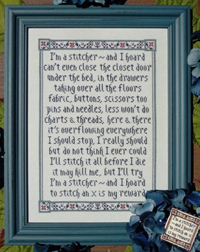 I'm a stitcher~and I hoard
can't even close the closet door
under the bed, in the drawers
taking over all the floors
fabric, buttons, scissors too
pins and needles, less won't do
charts & threads, here & there
it's overflowing everywhere
I should stop, I really should
but do not think I ever could
I'll stitch it all before I die
it may kill me, but I'll try
I'm a stitcher~and I hoard
to stitch an x is my reward